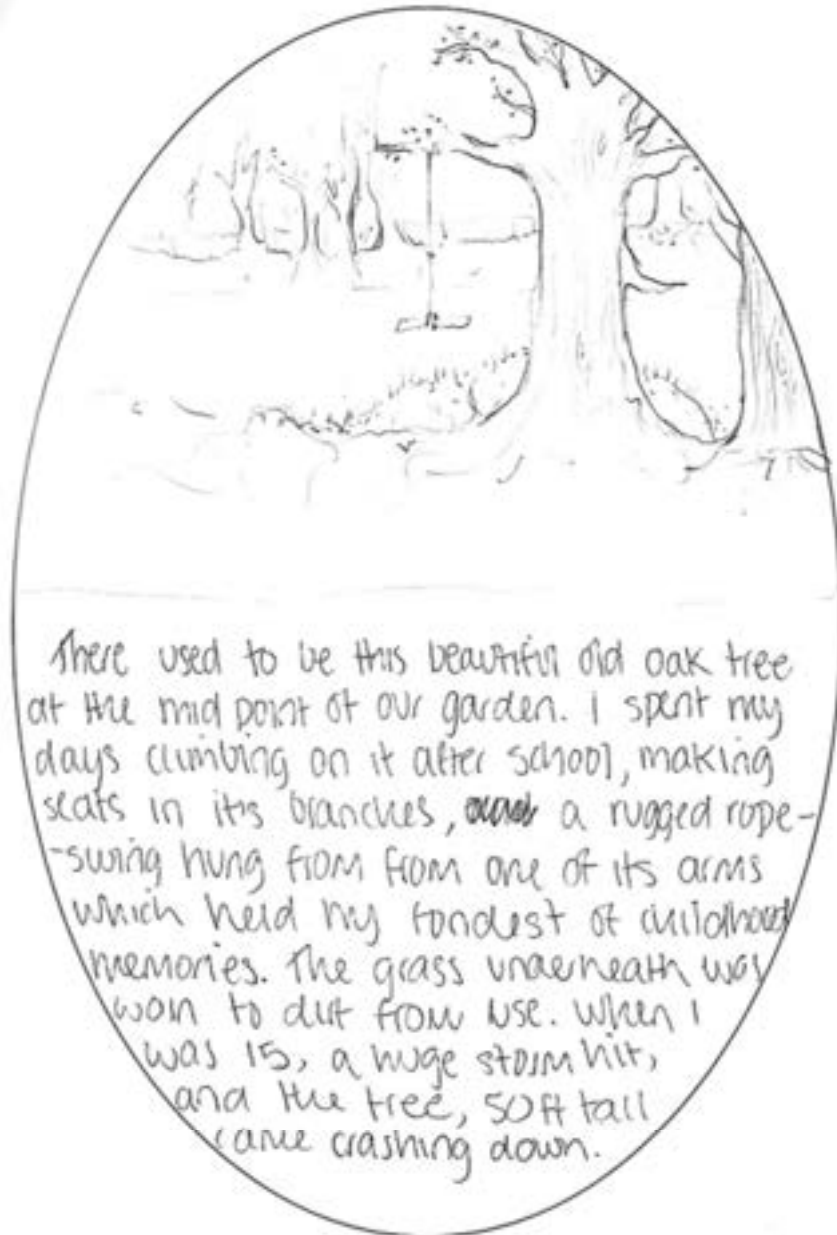 There used to be this beautiful old oak tree
at the mid point of our garden. I spent my
days climbing on it after school, making
seats in it's branches, a rugged rope-
-swing hung from from one of its arms
which held my fondest of childhood
memories. The grass underneath was
worn to dirt from use. When I
was 15, a huge storm hit,
and the tree, 50ft tall
came crashing down.